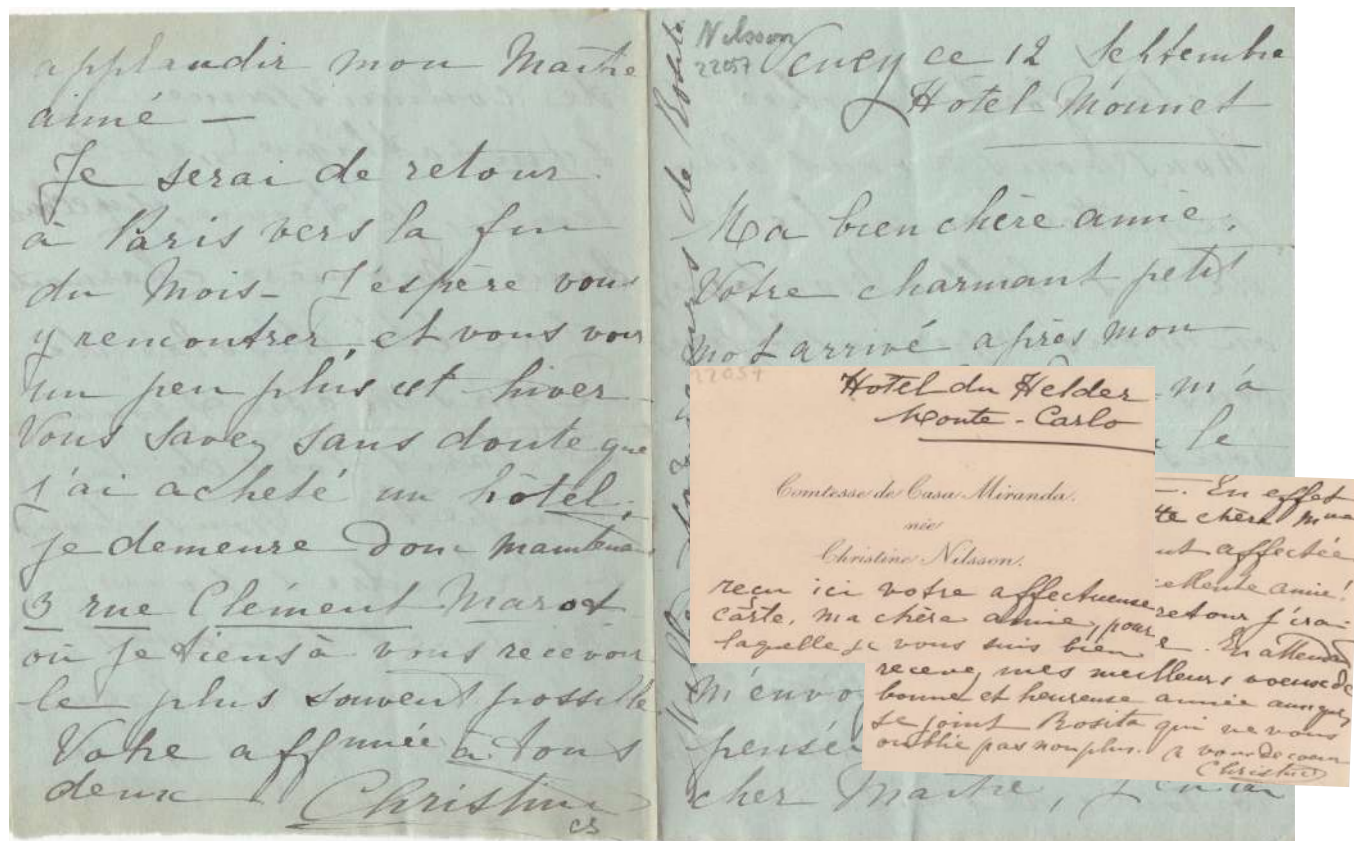 applaudir mon Maître
aimé —
Je serai de retour
à Paris vers la fin
du Mois - J'espère vous
y rencontrer, et vous voir
un peu plus cet hiver
Vous savez sans doute que
j'ai acheté un hôtel,
je demeure donc maintenant
3 rue Clément Marot
où je tiens à vous recevoir
le plus souvent possible
Votre affnnée à tous
deux Christine
Nilsson
22057
Vevey ce 12 Septembre
Hotel Mounet
Ma bien chère amie,
Votre charmant petit
mot arrivé après mon
m'a
le
m'envo
pensé
cher Maître, j'
de Rosita
22057
Hotel du Helder
Monte-Carlo
Comtesse de Casa Miranda.
née
Christine Nilsson.
reçu ici votre affectueuse
carte, ma chère amie, pour
laquelle je vous suis bien
En effet
tte chère Mme
ut affectée
cellente amie!
retour j'irai
En attendant
recevez mes meilleurs voeux de
bonne et heureuse année auxquels
se joint Rosita qui ne vous
oublie pas non plus. à vous de coeur
Christine